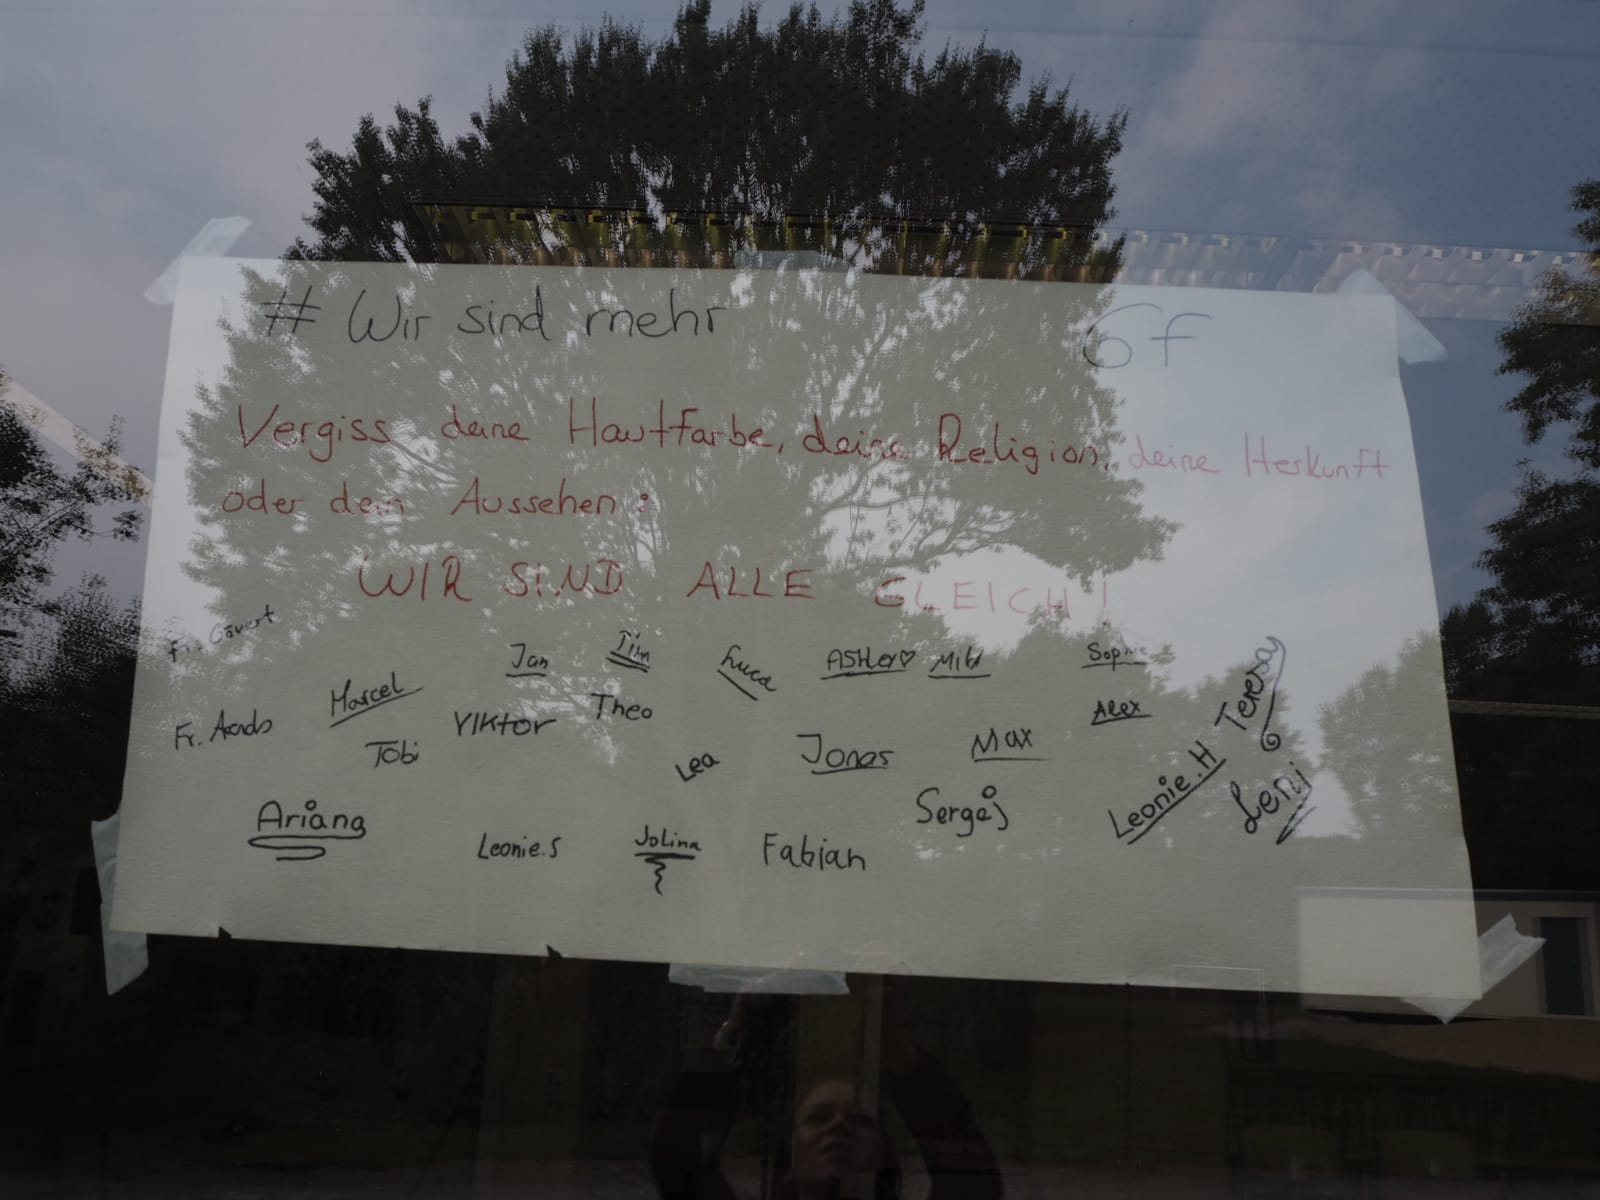 # Wir sind mehr
6f
Vergiss deine Hautfarbe, deine Religion, deine Herkunft
oder dein Aussehen:
WIR SIND ALLE GLEICH!
Fr.
Jan
Tim
Luca
ASHLEY♡
Sophie
Teresa
Marcel
Viktor
Theo
Alex
Fr.
Tobi
Lea
Jonas
Max
Leonie.H
Leni
Ariana
Leonie.S
Jolina
Fabian
Sergej